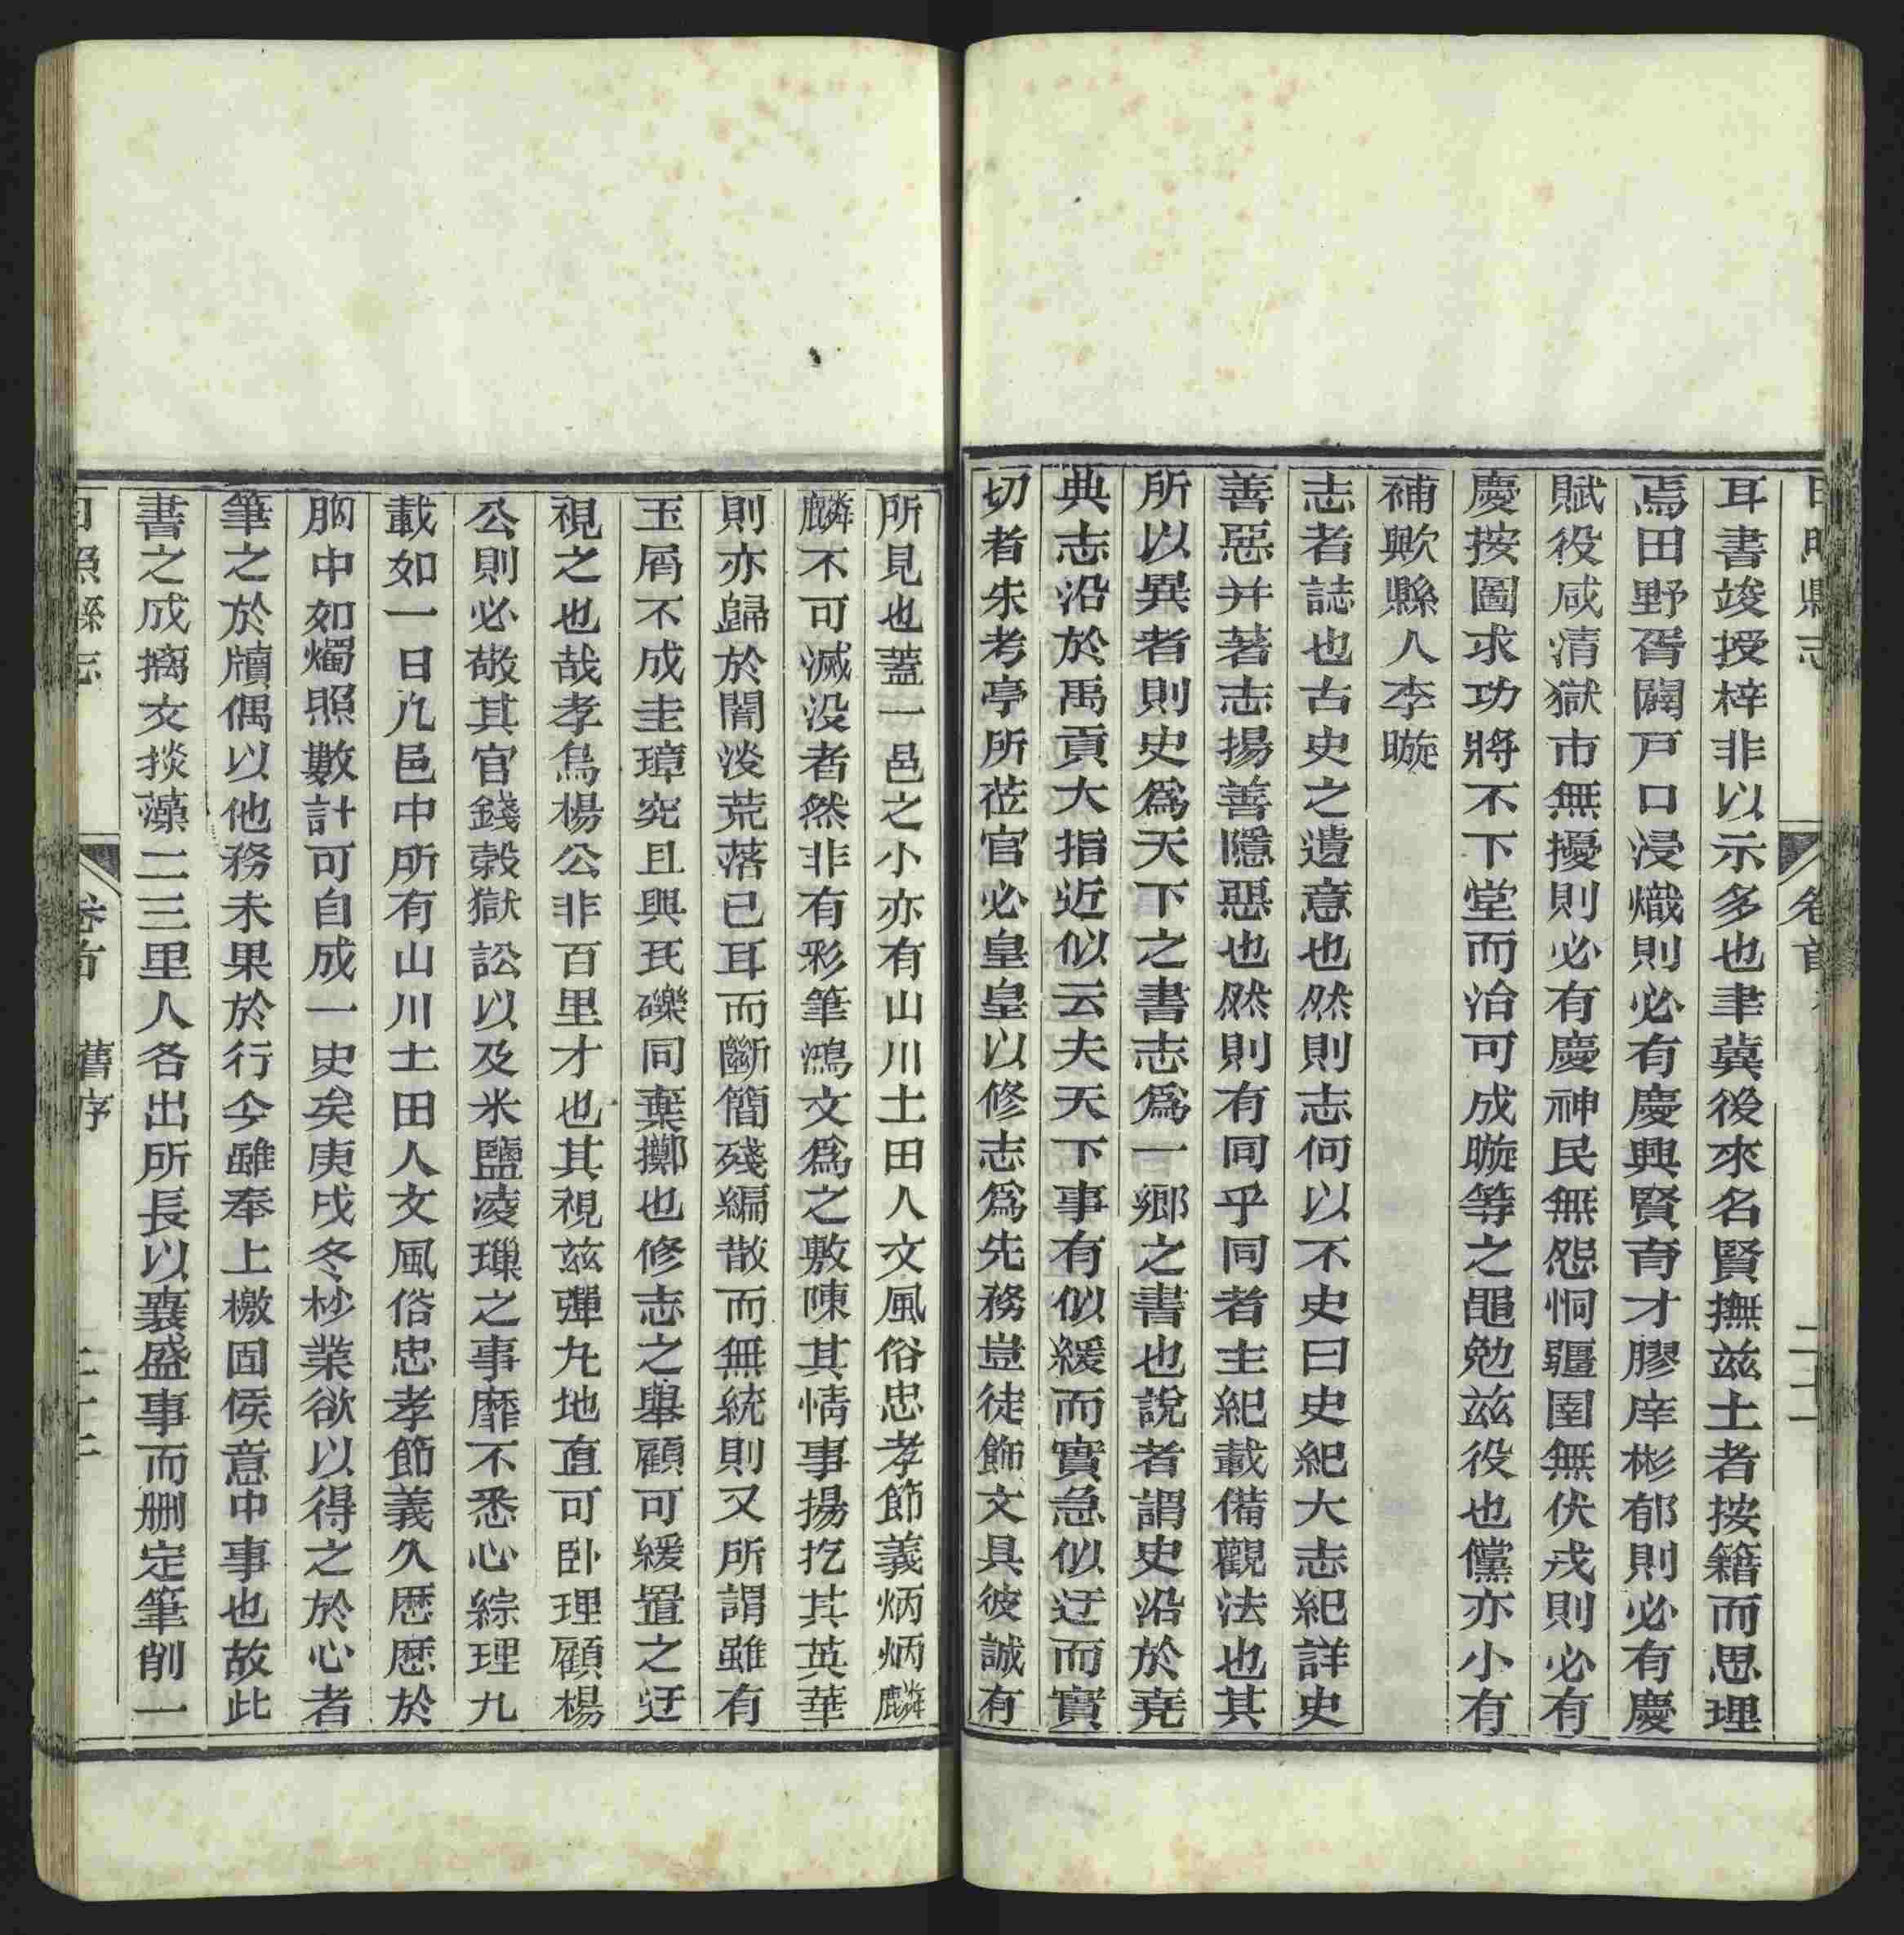 日照縣志 卷首 二十二
耳書竣授梓非以示多也聿冀後來名賢撫兹土者按籍而思理
焉田野胥闢戸口浸熾則必有慶興賢育才膠庠彬郁則必有慶
賦役咸清獄市無擾則必有慶神民無怨恫疆圉無伏戎則必有
慶按圖求功將不下堂而治可成暶等之黽勉兹役也儻亦小有
補歟縣人李暶
志者誌也古史之遺意也然則志何以不史曰史紀大志紀詳史
善惡并著志揚善隱惡也然則有同乎同者主紀載備觀法也其
所以異者則史爲天下之書志爲一鄉之書也說者謂史沿於堯
典志沿於禹貢大指近似云夫天下事有似緩而實急似迂而實
切者朱考亭所莅官必皇皇以修志爲先務豈徒飾文具彼誠有
所見也蓋一邑之小亦有山川土田人文風俗忠孝節義炳炳麟
麟不可滅没者然非有彩筆鴻文爲之敷陳其情事揚扢其英華
則亦歸於闇淡荒落已耳而斷簡殘編散而無統則又所謂雖有
玉屑不成圭璋究且與珷礫同棄擲也修志之舉顧可緩置之迂
視之也哉孝烏楊公非百里才也其視兹彈丸地直可卧理顧楊
公則必敬其官錢榖獄訟以及米鹽凌璅之事靡不悉心綜理九
載如一日凢邑中所有山川土田人文風俗忠孝節義久厯厯於
胸中如燭照數計可自成一史矣庚戌冬杪業欲以得之於心者
筆之於牘偶以他務未果於行今雖奉上檄固侯意中事也故此
書之成摛文掞藻二三里人各出所長以襄盛事而删定筆削一
日照縣志 卷首 舊序 二十三